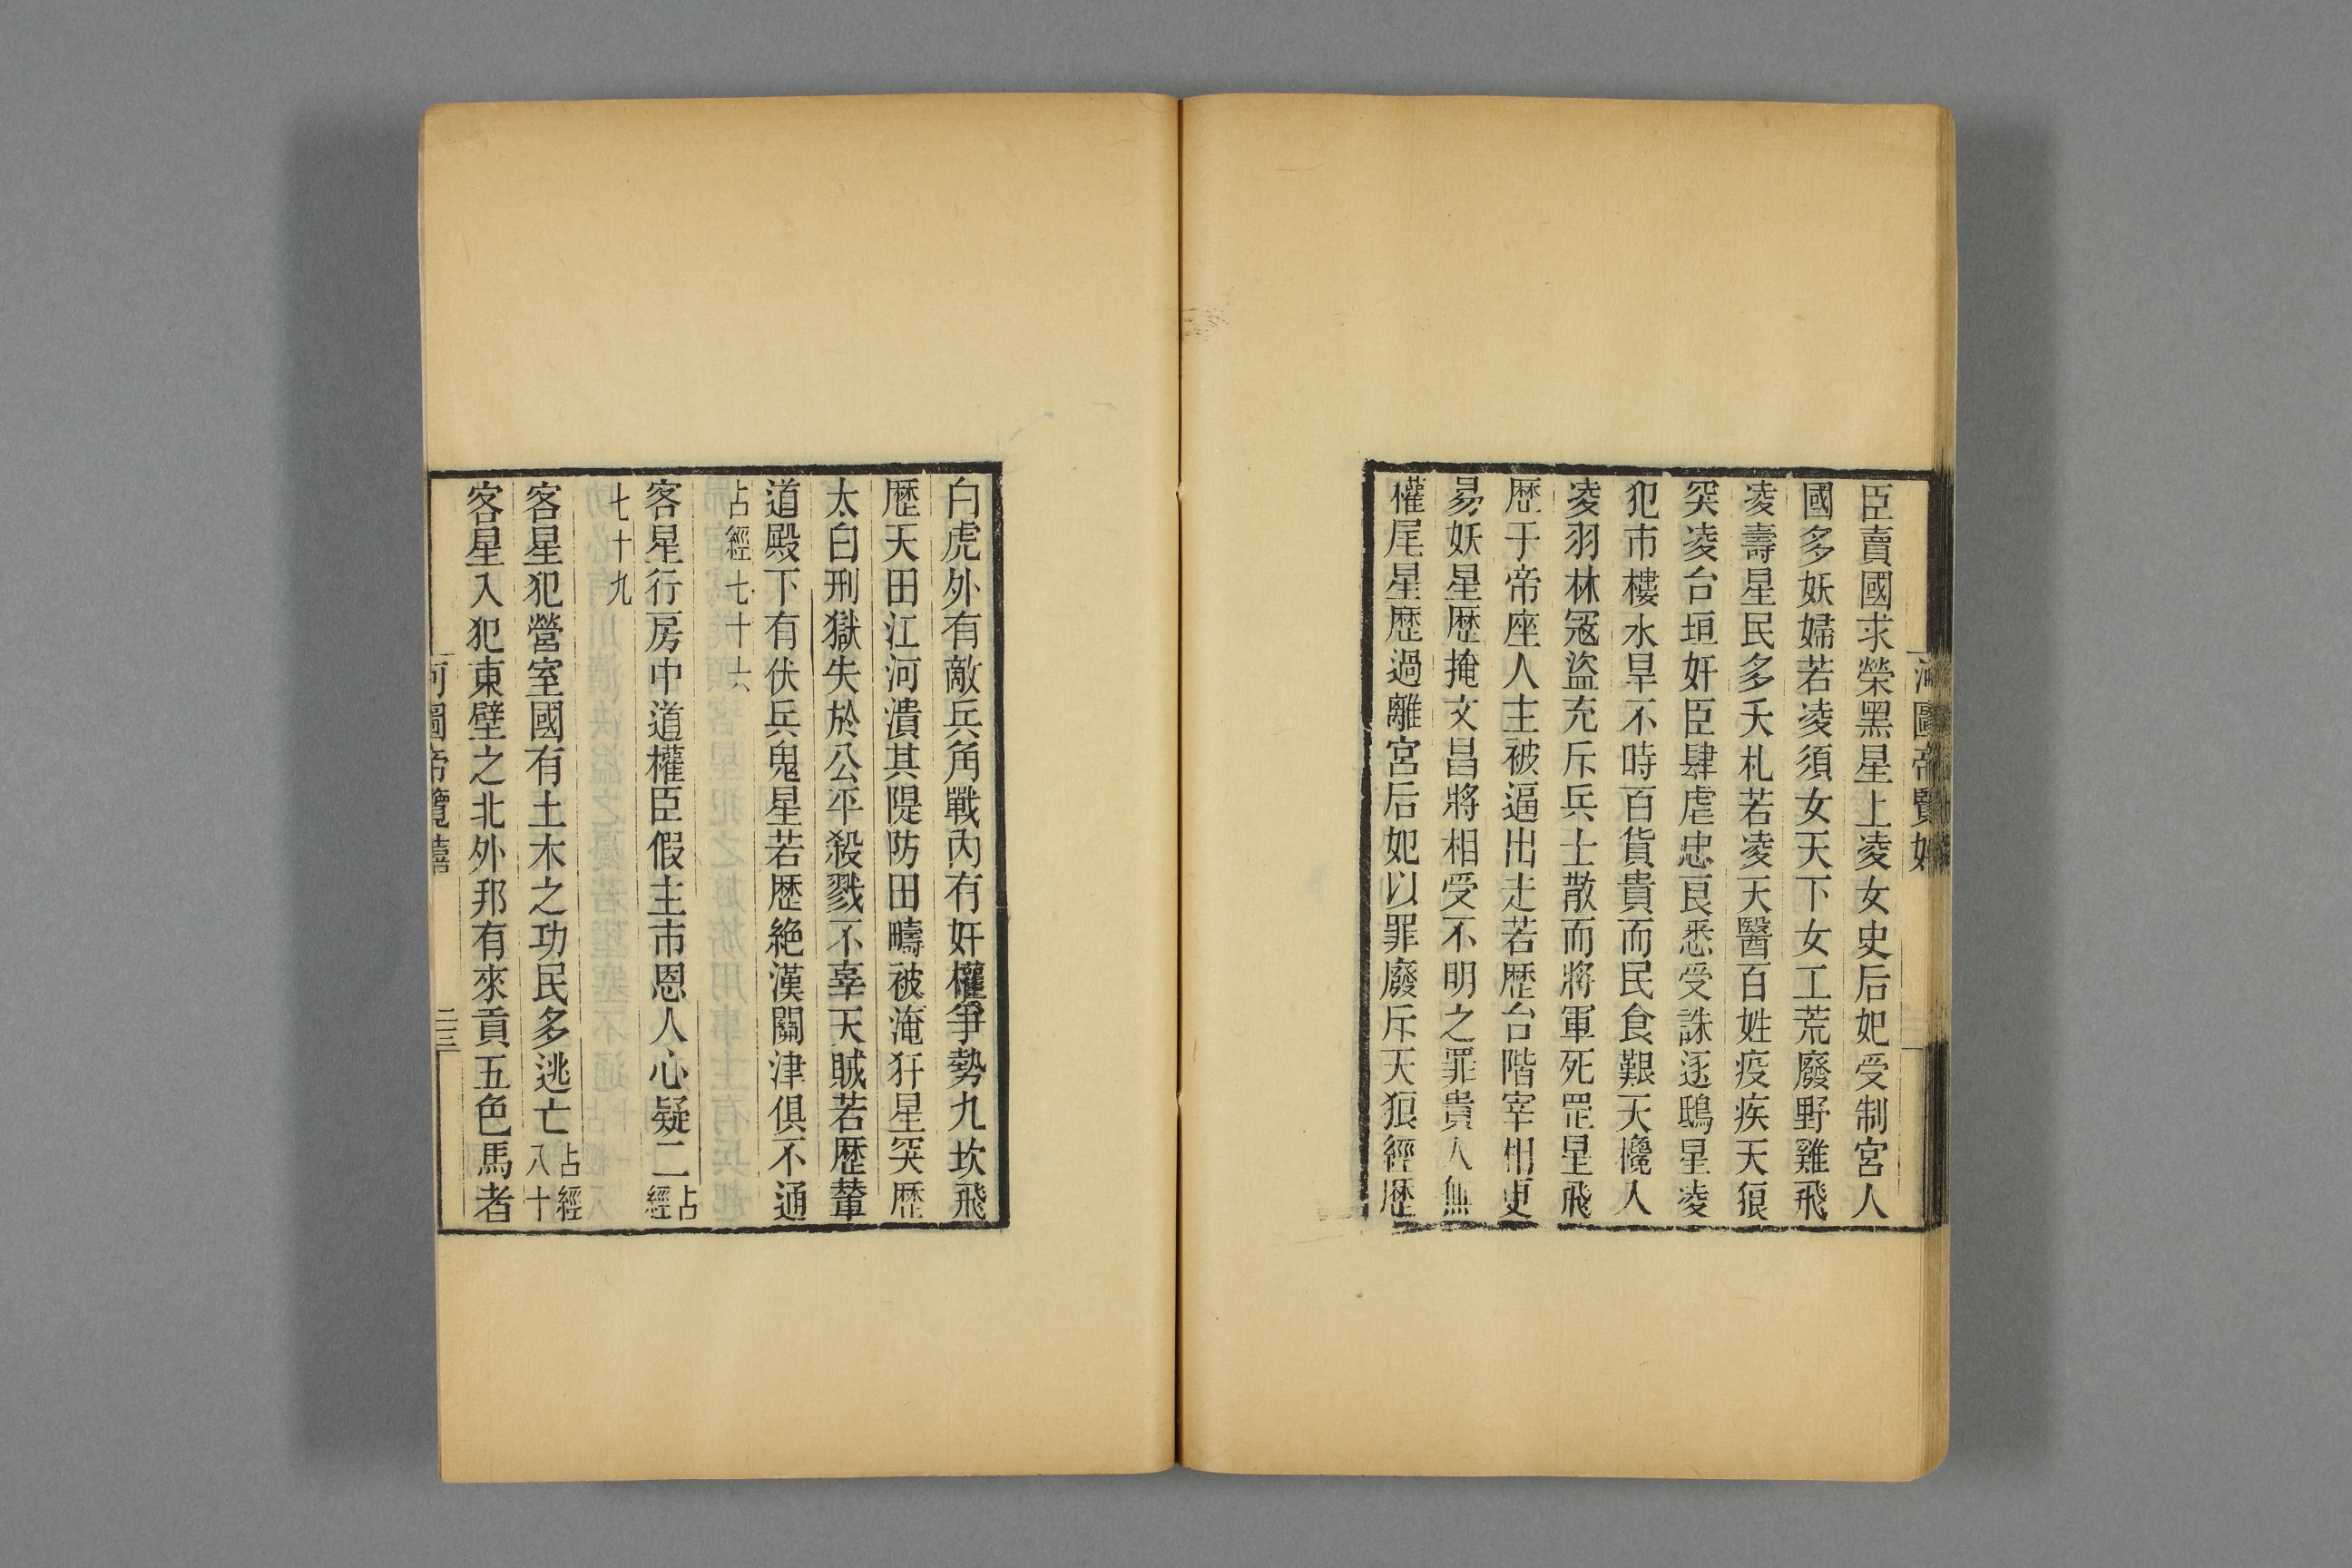 臣賣國求榮黑星上凌女史后妃受制宮人
國多妖婦若凌須女天下女工荒廢野雞飛
凌壽星民多夭札若凌天醫百姓疫疾天狼
突凌台垣奸臣肆虐忠良悉受誅逐鴟星凌
犯市樓水旱不時百貨貴而民食艱天欃入
凌羽林冦盜充斥兵士散而將軍死罡星飛
歴于帝座人主被逼出走若歴台階宰相更
易妖星歴掩文昌將相受不明之罪貴人無
權尾星歴過離宮后妃以罪廢斥天狼經歴
白虎外有敵兵角戰內有奸權爭勢九坎飛
歴天田江河潰其隄防田疇被淹犴星突歴
太白刑獄失於公平殺戮不辜天賊若歴輦
道殿下有伏兵鬼星若歴絶漢關津俱不通
占經七十六
客星行房中道權臣假主市恩人心疑二占經
七十九
客星犯營室國有土木之功民多逃亡占經八十
客星入犯東壁之北外邦有來貢五色馬者
河圖帝覽嬉
二三